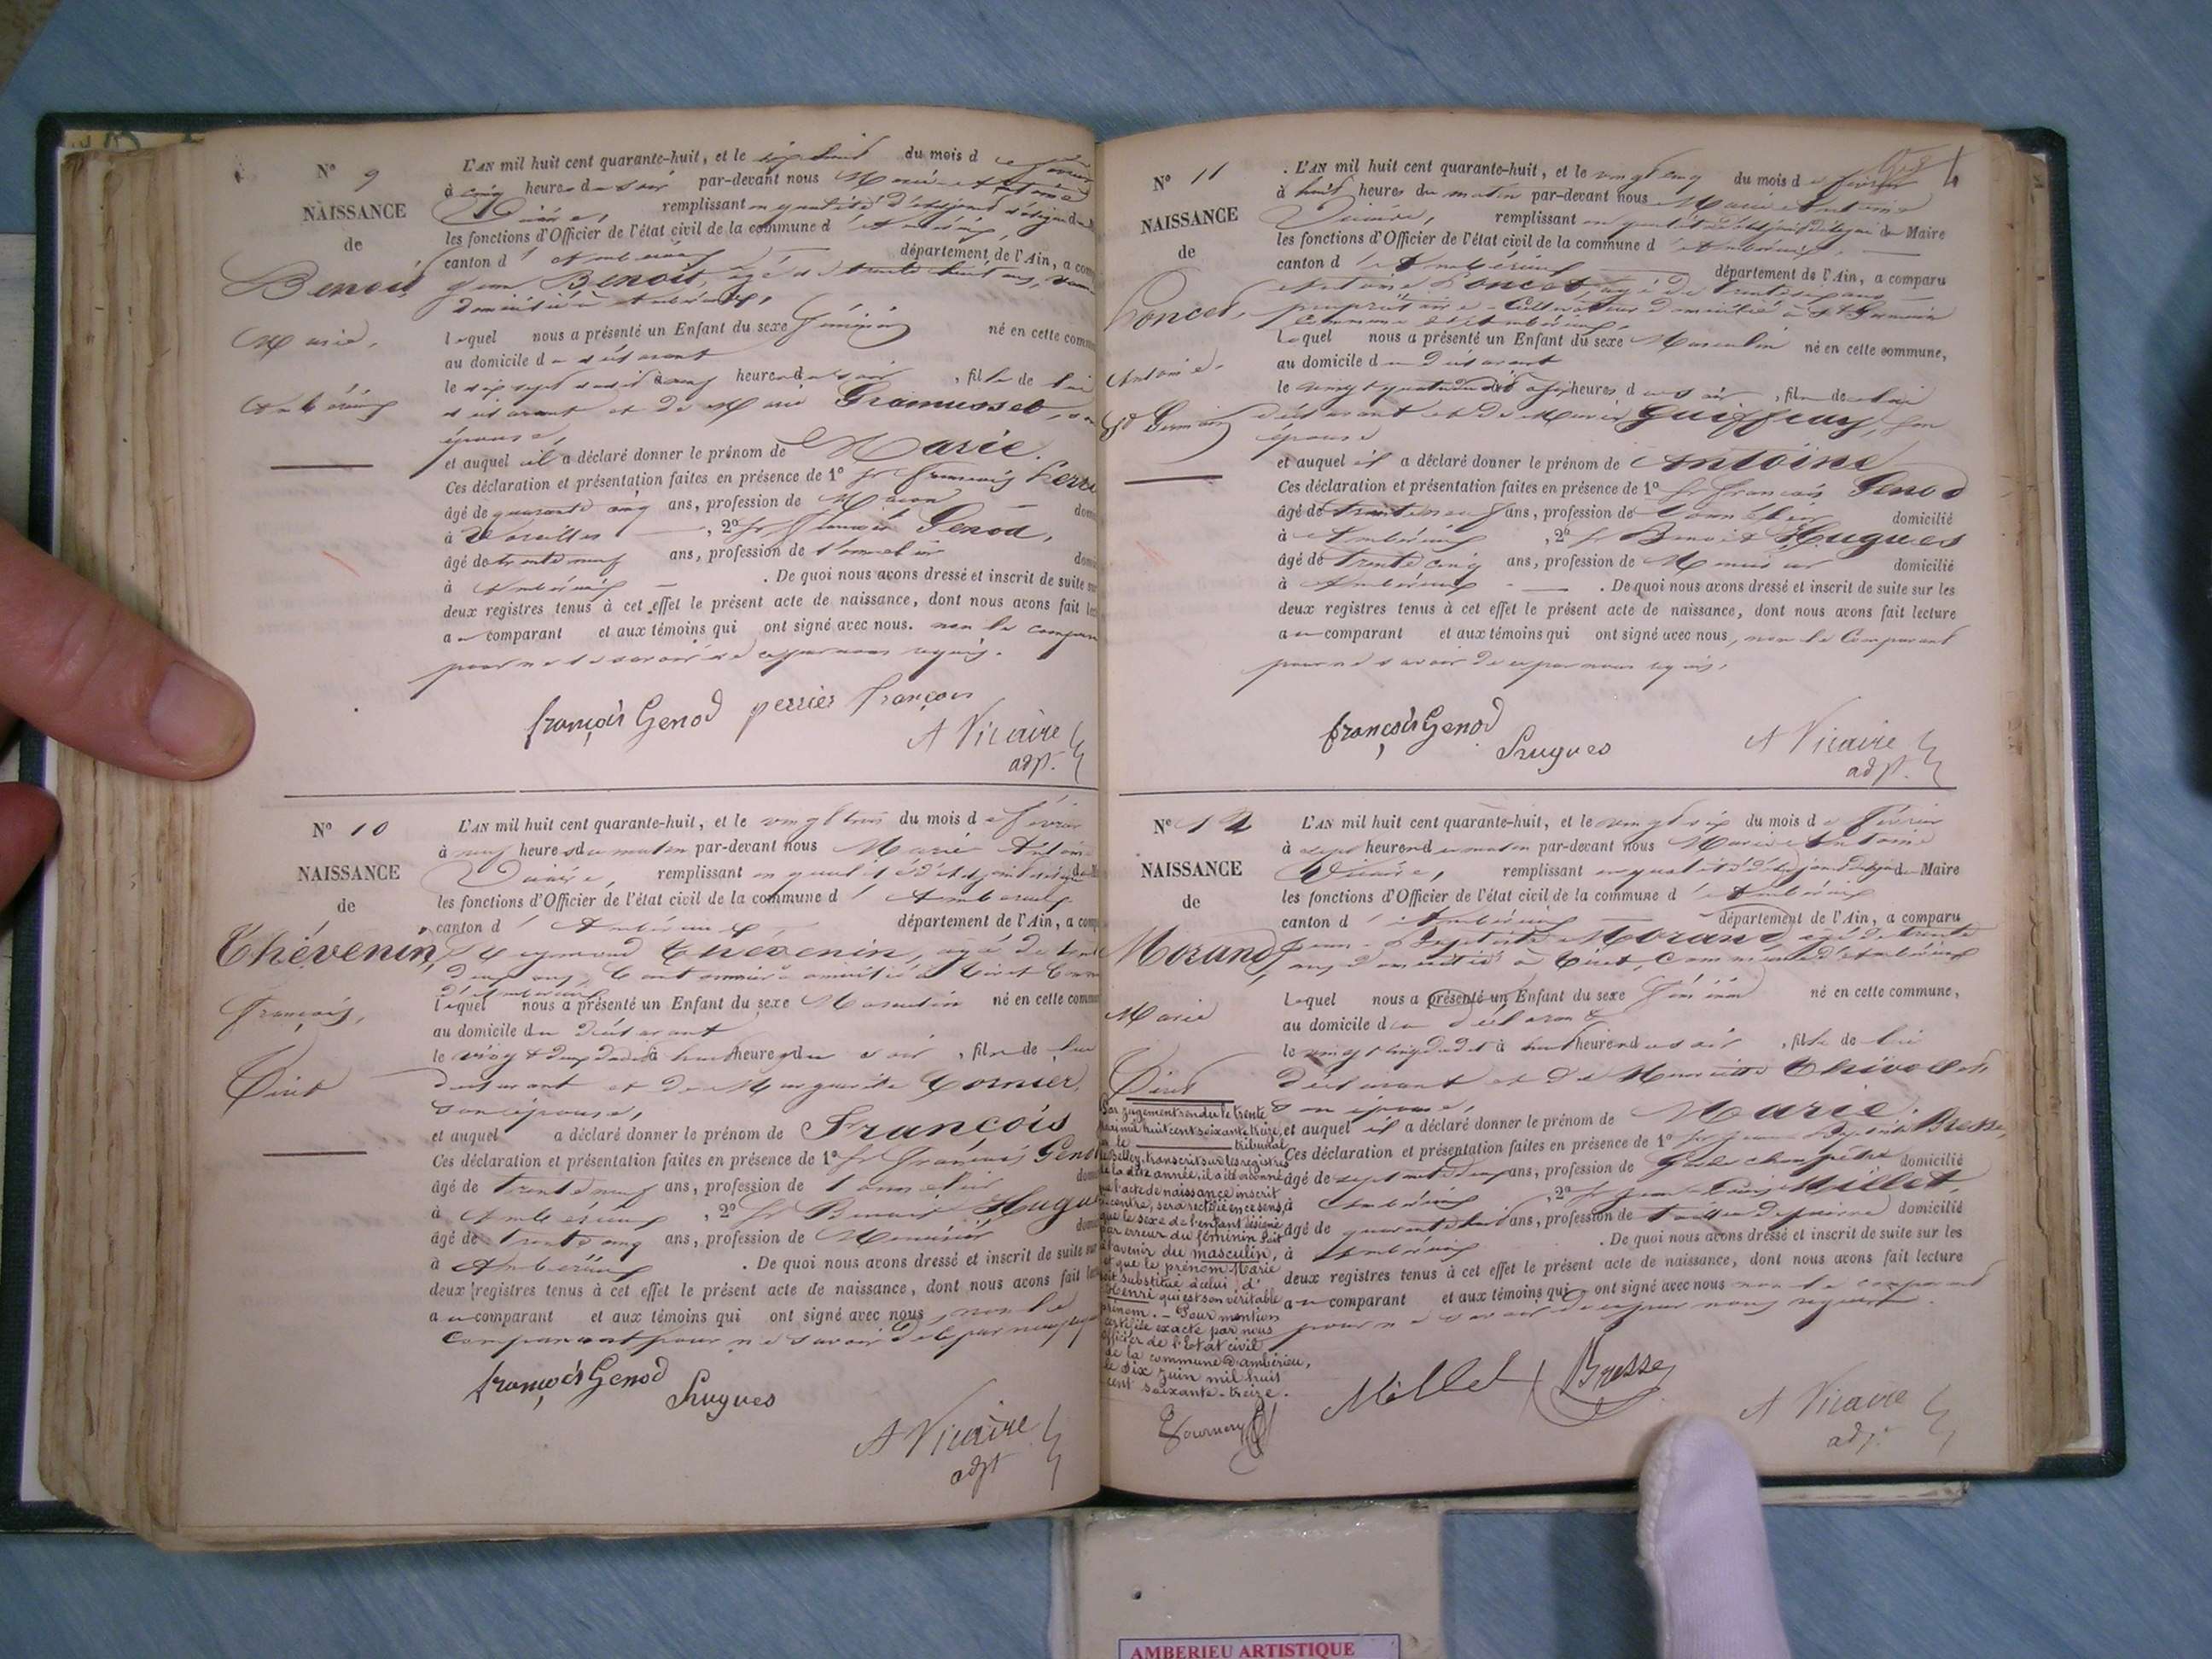 N° 9
NAISSANCE
de
Benoit
Marie,
Ambérieux
L'AN mil huit cent quarante-huit, et le dix huit du mois de février
à cinq heures du soir par-devant nous Marie Antoine
Vicaire, remplissant en qualité d'adjoint délégué du
les fonctions d'Officier de l'état civil de la commune d'Ambérieux,
canton d'Ambérieux département de l'Ain, a comp
Jean Benoit, âgé de trente huit ans,
domicilié à Ambérieux,
lequel nous a présenté un Enfant du sexe féminin né en cette comm
au domicile du déclarant
le dix sept dudit à heures du soir, fille de lui
déclarant et de Marie Gramusset, son
épouse,
et auquel il a déclaré donner le prénom de Marie.
Ces déclaration et présentation faites en présence de 1° Sr françois Perri
âgé de quarante cinq ans, profession de Maçon dom
à , 2° Sr François Genod,
âgé de trente neuf ans, profession de tonnelier domi
à Ambérieux . De quoi nous avons dressé et inscrit de suite sur
deux registres tenus à cet effet le présent acte de naissance, dont nous avons fait lec
au comparant et aux témoins qui ont signé avec nous. non le comparan
pour ne le savoir de ce par nous requis.
françois Genod perrier françois
A Vicaire
adjt.
N° 10
NAISSANCE
de
Thévenin,
François,
Tiret
L'AN mil huit cent quarante-huit, et le vingt trois du mois de février
à neuf heures du matin par-devant nous Marie Antoine
Vicaire, remplissant en qualité d'adjoint délégué du
les fonctions d'Officier de l'état civil de la commune d'Ambérieux
canton d'Ambérieux département de l'Ain, a comp
Thévenin, âgé de trente
deux ans, Cantonnier domicilié à Tiret Comm
d'Ambérieux
lequel nous a présenté un Enfant du sexe Masculin né en cette commu
au domicile du déclarant
le vingt deux dudit à huit heures du soir, fils de lui
déclarant et de Marguerite Cormier,
son épouse,
et auquel a déclaré donner le prénom de François
Ces déclaration et présentation faites en présence de 1° Sr François Genod
âgé de trente neuf ans, profession de tonnelier domi
à Ambérieux , 2° Sr Benoit Hugu
âgé de trente cinq ans, profession de Menuisier domi
à Ambérieux . De quoi nous avons dressé et inscrit de suite sur
deux registres tenus à cet effet le présent acte de naissance, dont nous avons fait lec
au comparant et aux témoins qui ont signé avec nous, non le
comparant pour ne savoir de ce par nous requis
françois Genod
Hugues
A Vicaire
adjt
N° 11
NAISSANCE
de
Poncet,
Antoine.
St Germain
L'AN mil huit cent quarante-huit, et le vingt cinq du mois de février
à huit heures du matin par-devant nous Marie Antoine
Vicaire, remplissant en qualité d'adjoint délégué du Maire
les fonctions d'Officier de l'état civil de la commune d'Ambérieux,
canton d'Ambérieux département de l'Ain, a comparu
Antoine Poncet, âgé de trente sept ans
propriétaire Cultivateur domicilié à St Germain
Commune d'Ambérieux,
Lequel nous a présenté un Enfant du sexe Masculin né en cette commune,
au domicile du déclarant
le vingt quatre dudit à heures du soir, fils de lui
déclarant et de Marie Guiffray, son
épouse
et auquel il a déclaré donner le prénom de Antoine
Ces déclaration et présentation faites en présence de 1° Sr François Genod
âgé de trente neuf ans, profession de tonnelier domicilié
à Ambérieux , 2° Sr Benoit Hugues
âgé de trente cinq ans, profession de Menuisier domicilié
à Ambérieux . De quoi nous avons dressé et inscrit de suite sur les
deux registres tenus à cet effet le présent acte de naissance, dont nous avons fait lecture
au comparant et aux témoins qui ont signé avec nous, non le Comparant
pour ne savoir de ce par nous requis,
françois Genod
Hugues
A Vicaire
adjt.
N° 12
NAISSANCE
de
Morand,
Marie
Tiret
L'AN mil huit cent quarante-huit, et le vingt six du mois de février
à sept heures du matin par-devant nous Marie Antoine
Vicaire, remplissant en qualité d'adjoint délégué du Maire
les fonctions d'Officier de l'état civil de la commune d'Ambérieux
canton d'Ambérieux département de l'Ain, a comparu
Jean-Baptiste Morand, âgé de trente
ans domicilié à Tiret, Commune d'Ambérieux
Lequel nous a présenté un Enfant du sexe féminin né en cette commune,
au domicile du déclarant
le vingt cinq dudit à huit heures du soir, fille de lui
déclarant et de Henriette Thivollet
son épouse,
et auquel il a déclaré donner le prénom de Marie.
Ces déclaration et présentation faites en présence de 1° Sr Jean Baptiste Bresse,
âgé de ans, profession de Garde champêtre domicilié
à Ambérieux , 2° Sr Jean Millet,
âgé de quarante huit ans, profession de tailleur de pierre domicilié
à Ambérieux . De quoi nous avons dressé et inscrit de suite sur les
deux registres tenus à cet effet le présent acte de naissance, dont nous avons fait lecture
au comparant et aux témoins qui ont signé avec nous non le comparant
pour ne savoir de ce par nous requis.
Par jugement rendu le trente
mai mil huit cent soixante treize,
par le tribunal
de Belley, transcrit sur les registres
de la dite année, il a été ordonné
que l'acte de naissance inscrit
ci contre, sera rectifié en ce sens,
que le sexe de l'enfant désigné
par erreur du féminin soit
à l'avenir du masculin,
et que le prénom Marie
soit substitué à celui d'
Henri qui est son véritable
prénom. - Pour mention
certifiée exacte par nous
officier de l'Etat civil
de la commune d'ambérieu,
le six juin mil huit
cent soixante-treize.
Millet Bresse
A Vicaire
adjt
AMBERIEU ARTISTIQUE